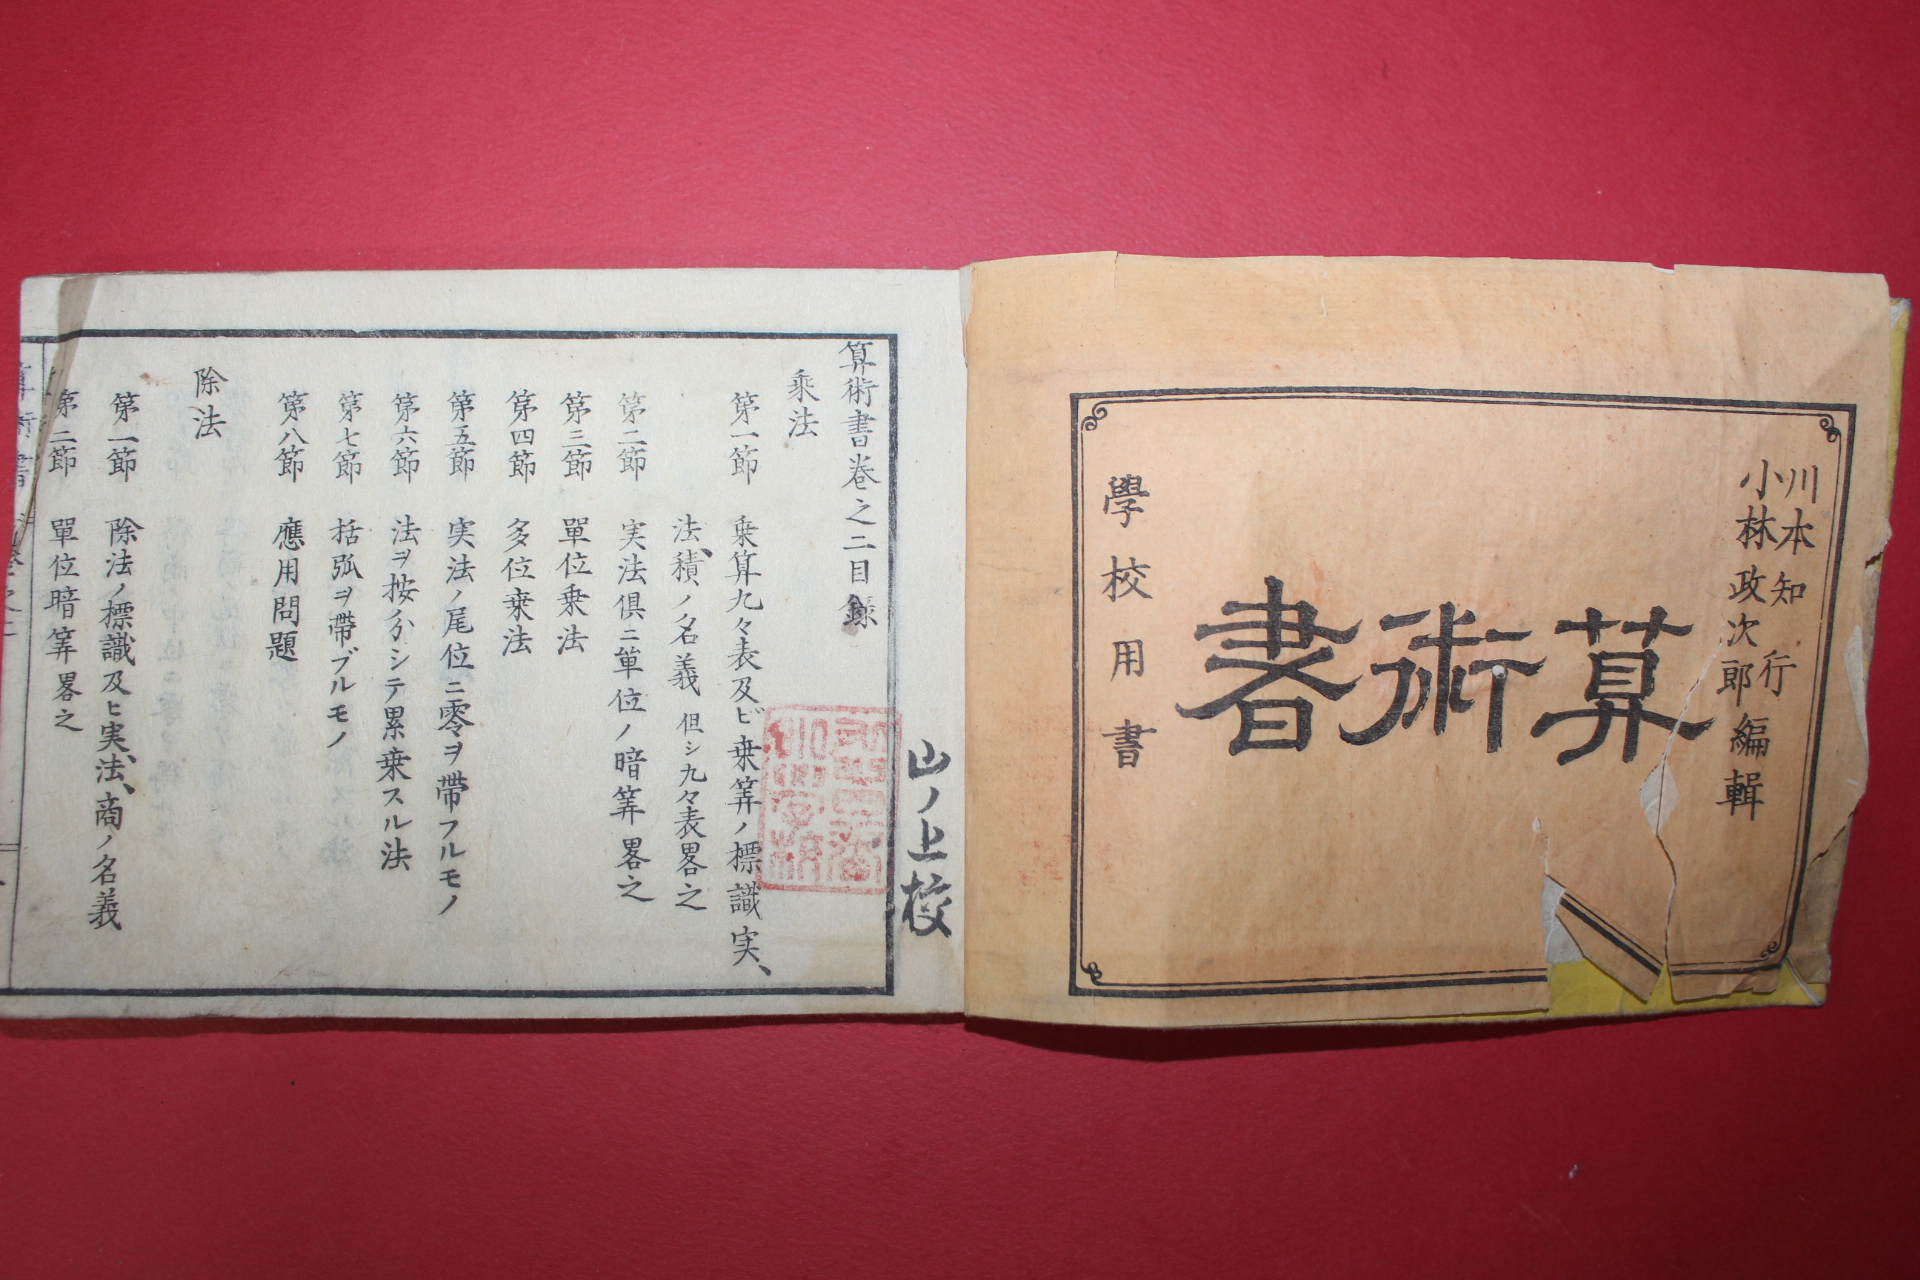 川本知行
小林政次郎編輯
算術書
學校用書
山ノ上校
算術書卷之二目錄
乗法
第一節 乗算九々表及ビ乗筭ノ標識実、
法、積、ノ名義 但シ九々表畧之
第二節 実法俱ニ單位ノ暗筭 畧之
第三節 單位乗法
第四節 多位乗法
第五節 実法ノ尾位ニ零ヲ帶フルモノ
第六節 法ヲ按分シテ累乗スル法
第七節 括弧ヲ帶ブルモノ
第八節 應用問題
除法
第一節 除法ノ標識及ヒ実、法、商ノ名義
第二節 單位暗筭 畧之